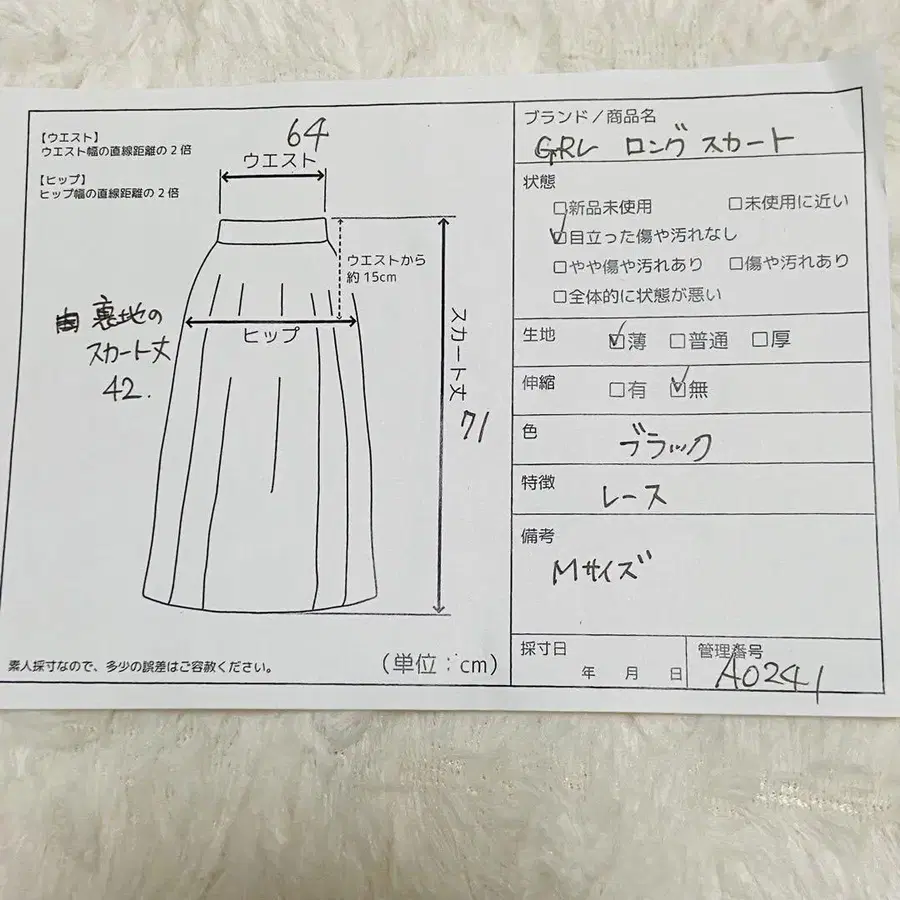 【ウエスト】
ウエスト幅の直線距離の2倍
【ヒップ】
ヒップ幅の直線距離の2倍
64
ウエスト
ウエストから
約15cm
ヒップ
裏地の
スカート丈
42.
スカート丈
71
素人採寸なので、多少の誤差はご容赦ください。
(単位：cm)
ブランド/商品名
GRL ロングスカート
状態
□新品未使用 □未使用に近い
☑目立った傷や汚れなし
□やや傷や汚れあり □傷や汚れあり
□全体的に状態が悪い
生地 ☑薄 □普通 □厚
伸縮 □有 ☑無
色
ブラック
特徴
レース
備考
Mサイズ
採寸日
年 月 日
管理番号
A0241